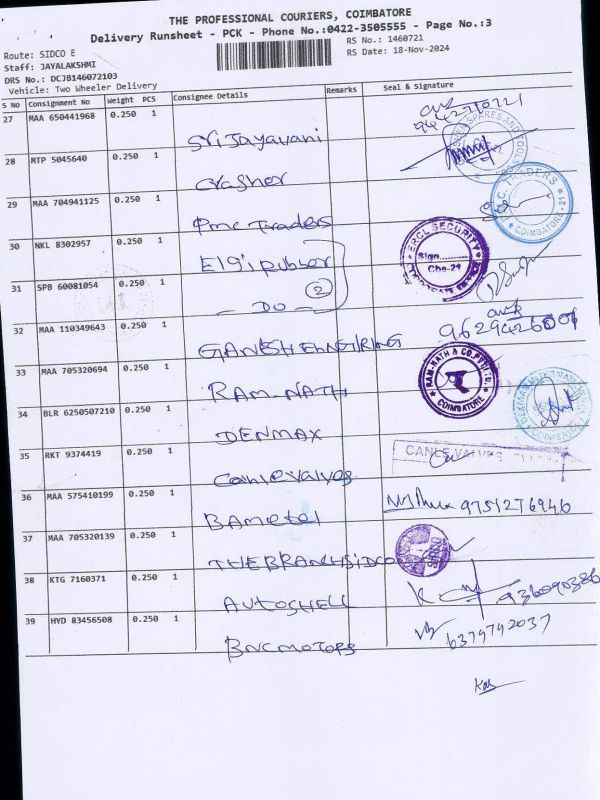 THE PROFESSIONAL COURIERS, COIMBATORE
Delivery Runsheet - PCK - Phone No.:0422-3505555 - Page No.:3
Route: SIDCO E
RS No.: 1460721
Staff: JAYALAKSHMI
RS Date: 18-Nov-2024
DRS No.: DCJB146072103
Vehicle: Two Wheeler Delivery
S No Consignment No Weight PCS Consignee Details Remarks Seal & Signature
27 MAA 650441968 0.250 1 Sri Jayavani
28 MTP 5045640 0.250 1 Crasher
29 MAA 704941125 0.250 1 Pmc Traders
TRADERS COIMBATORE-21
30 NKL 8302957 0.250 1 Elgi rubber
ERCL SECURITY Sign....... Cbe-21
31 SPB 60081054 0.250 1 - DO - 2
32 MAA 110349643 0.250 1 GANESH ENGIRING 9629426001
33 MAA 705320694 0.250 1 RAM-NATH
RAM-NATH & CO.PVT.LTD. COIMBATORE
34 BLR 6250507210 0.250 1 DENMAX
35 RKT 9374419 0.250 1 Canle valves
CANLE VALVES
36 MAA 575410199 0.250 1 BAmetel 9751276946
37 MAA 705320139 0.250 1 THEBRANCHSIDCO
38 KTG 7160371 0.250 1 AUTOSHELL
39 HYD 83456508 0.250 1 BNC MOTORS 6379792037